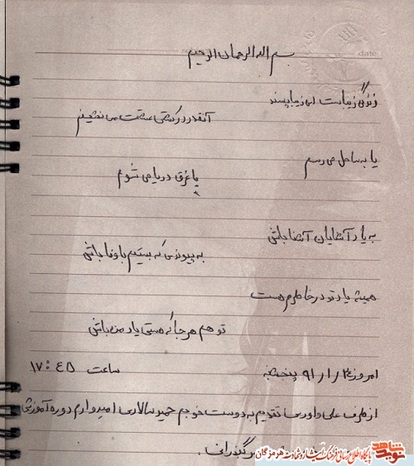 بسم الله الرحمان الرحیم
زندگی زیباست ای زیبا پسند
آنقدر در کشتی عشقت می نشینم
یا به ساحل می رسم
یا غرق دریا می شوم
به یاد آشنایان آشنا باش
به پیوندی که بستیم باوفا باش
همیشه یاد تو در خاطرم هست
تو هم هر جا که هستی یاد من باش
امروز ۹۱ پنجشنبه ساعت ۱۷:۴۵
از طرف علی داوری تقدیم به دوست خوبم حمید سالاری امیدوارم دوره آموزشی
بگذرانی.